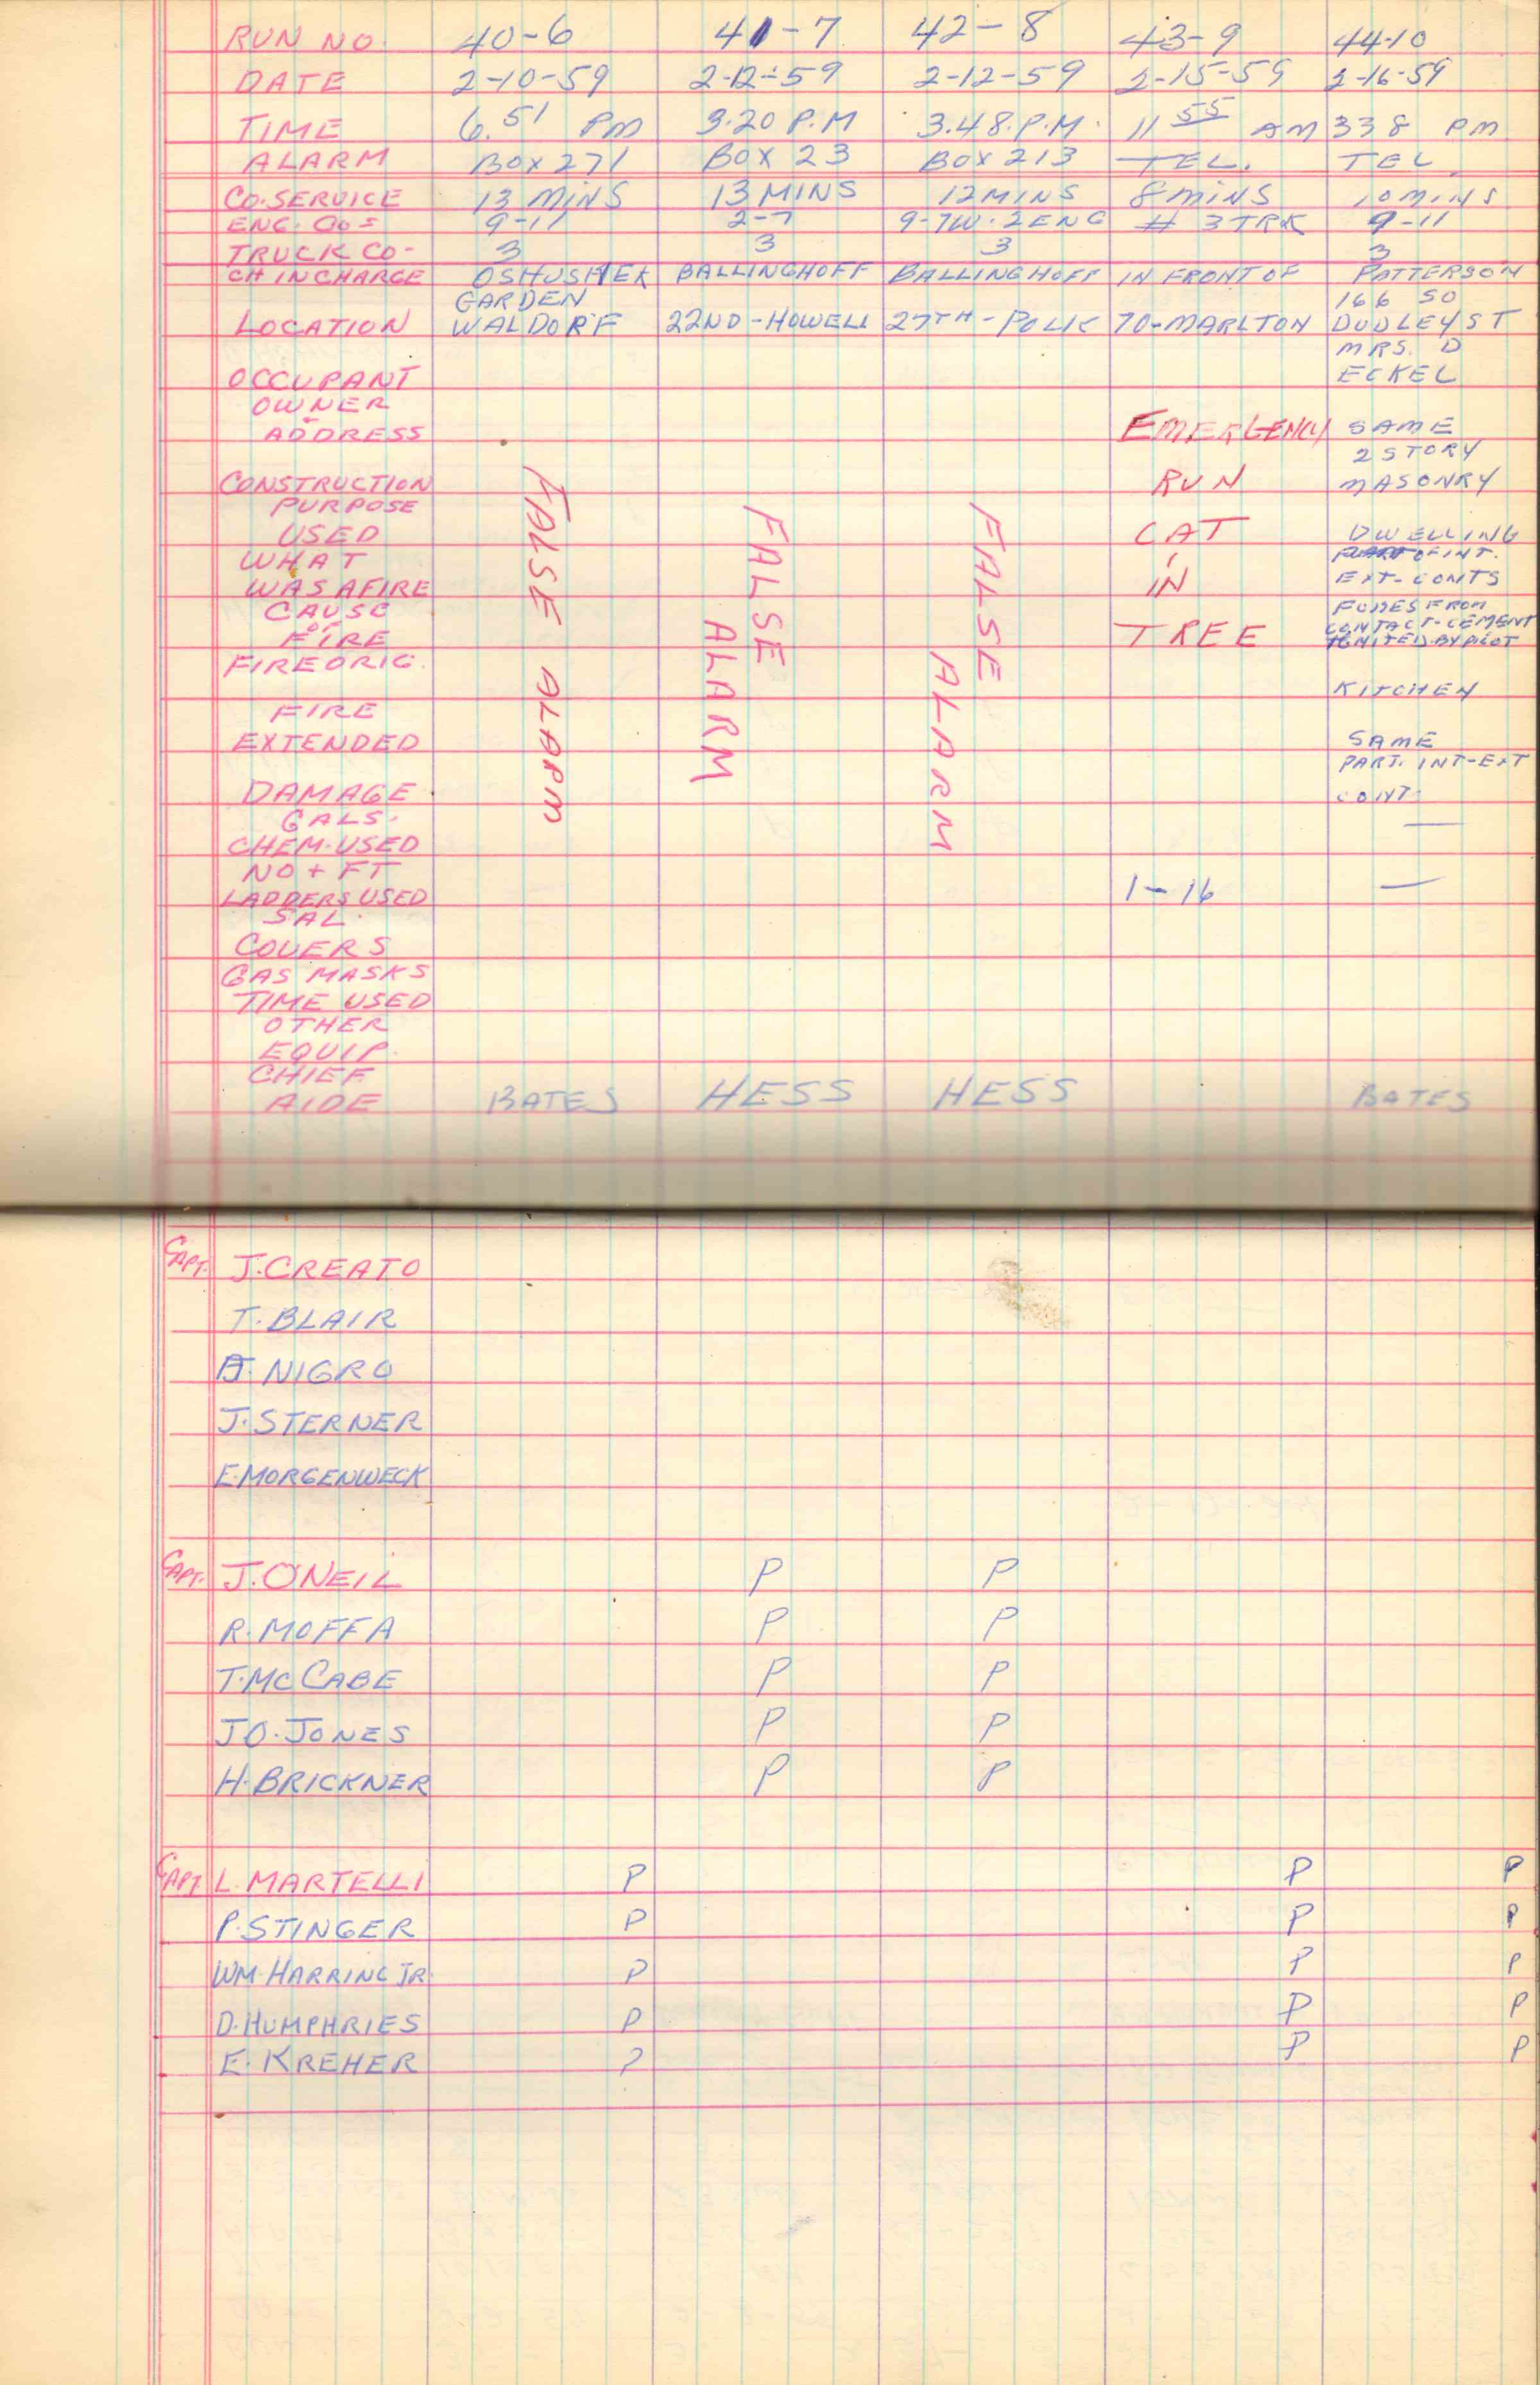 RUN NO. 40-6 41-7 42-8 43-9 44-10
DATE 2-10-59 2-12-59 2-12-59 2-15-59 2-16-59
TIME 6.51 PM 3.20 P.M 3.48.P.M. 11 55 AM 338 PM
ALARM BOX 271 BOX 23 BOX 213 TEL. TEL
CO. SERVICE 13 MINS 13 MINS 12 MINS 8 MINS 10 MINS
ENG. CO S 9-11 2-7 9-7W. 2 ENG # 3 TRK 9-11
TRUCK CO- 3 3 3 3
CH IN CHARGE BALLINGHOFF BALLINGHOFF IN FRONT OF PATTERSON
GARDEN 166 SO
LOCATION WALDORF 22ND-HOWELL 27TH-POLK 70-MARLTON DUDLEY ST
MRS. D
OCCUPANT ECKEL
OWNER
ADDRESS EMERGENCY SAME
2 STORY
CONSTRUCTION RUN MASONRY
PURPOSE
USED CAT DWELLING
WHAT OF INT.
WAS AFIRE IN EXT-CONTS
CAUSE FUMES FROM
OF CONTACT-CEMENT
FIRE TREE IGNITED BY PILOT
FIRE ORIG. KITCHEN
FALSE ALARM
FALSE ALARM
FALSE ALARM
FIRE
EXTENDED SAME
PART. INT-EXT
DAMAGE CONT.
GALS.
CHEM. USED —
NO + FT
LADDERS USED 1-16 —
SAL.
COVERS
GAS MASKS
TIME USED
OTHER
EQUIP.
CHIEF
AIDE BATES HESS HESS BATES
CAPT. J. CREATO
T. BLAIR
A. NIGRO
J. STERNER
E. MORGENWECK
CAPT. J. O'NEIL P P
R. MOFFA P P
T. MCCABE P P
JO. JONES P P
H. BRICKNER P P
CAPT L. MARTELLI P P P
P. STINGER P P P
WM. HARRING JR. P P P
D. HUMPHRIES P P P
E. KREHER P P P